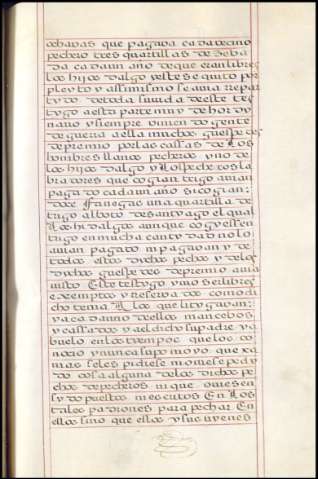 ochavas que pagava cada vecino
pechero tres quartillas de zeba
da cada un año de que eran libres
los hijos dalgo y este se quito por
pleyto y assimismo se avia repar
tydo de toda su vida deste tes
tygo a esta parte muy de hordy
nario y siempre vinien do gente
de guerra a ella muchos guespedes
de premio por las cassas de los
hombres llanos pecheros y no de
los hijos dalgo y los pecheros la
bradores que cogian trigo avian
pagado cada un año si cogian
doce fanegas una quartilla de
trigo al boto de santyago el qual
los hidalgos aunque coxyessen
trigo en mucha cantydad no lo
avian pagado ni pagavan y de
todos estos dichos pechos y de los
dichos guespedes de premio avia
visto este testygo y no ser libres
exsemptos y reservados como di
cho tenia a los que litygavan
y a cada uno dellos mancebos
y cassados y a el dicho su padre y a
buelo en los tyempos que los co
nocio y nunca supo ni oyo que xa
mas se les pidiese moniese pecha
do cosa alguna de los dichos pe
chos de pecheros ni que oviesen
sydo puestos mecutos en los
tales padrones para pechar en
ellos sino que ellos y sus vienes